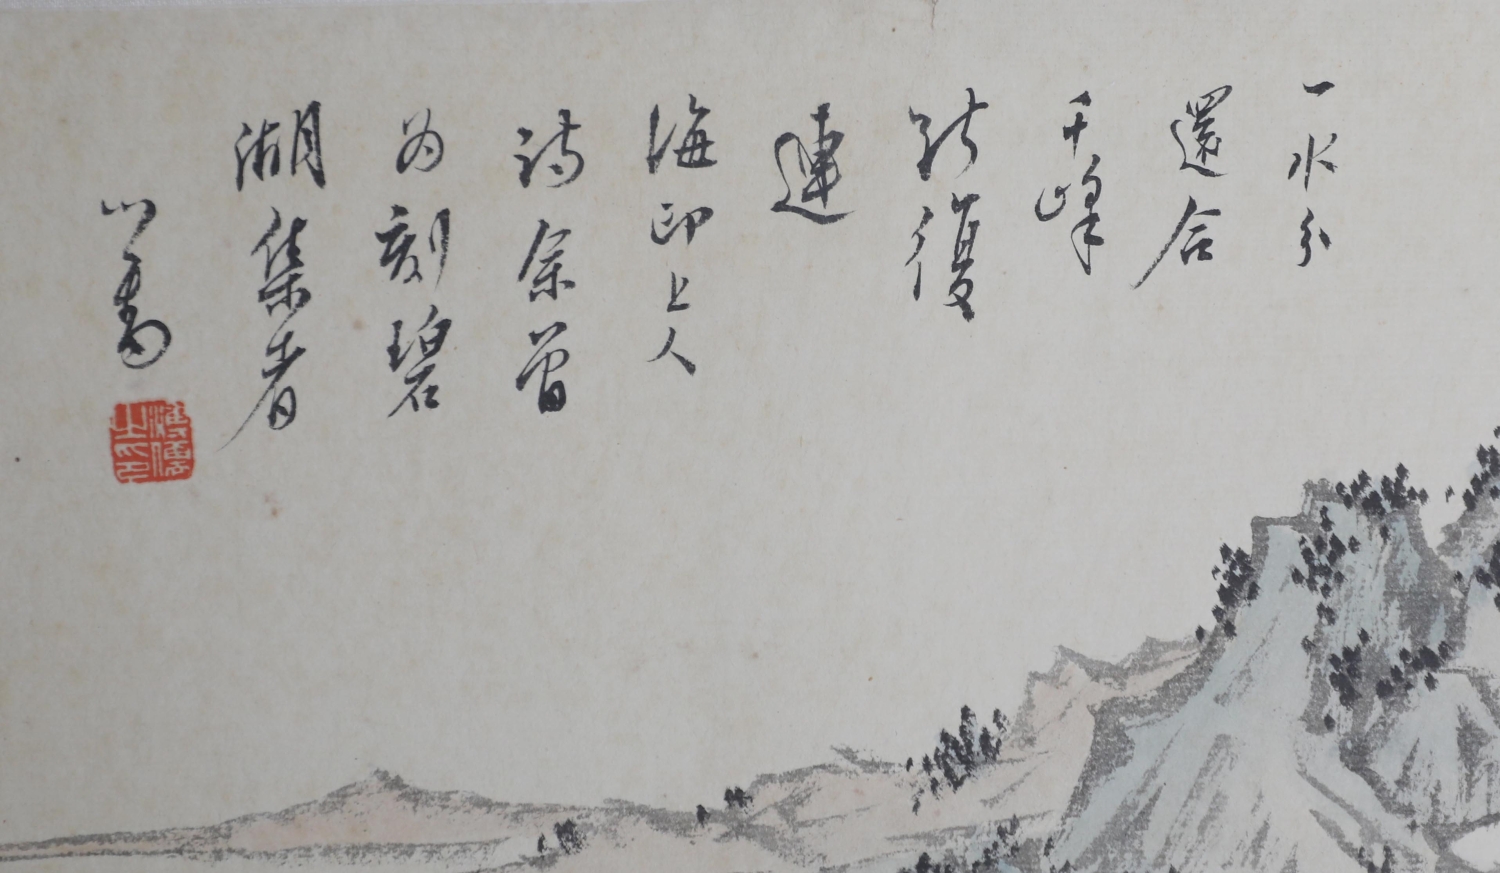 一水分
還合
千峰
斷復
連
海印上人
詩余曾
為刻碧
湖集者
心畬
溥儒之印